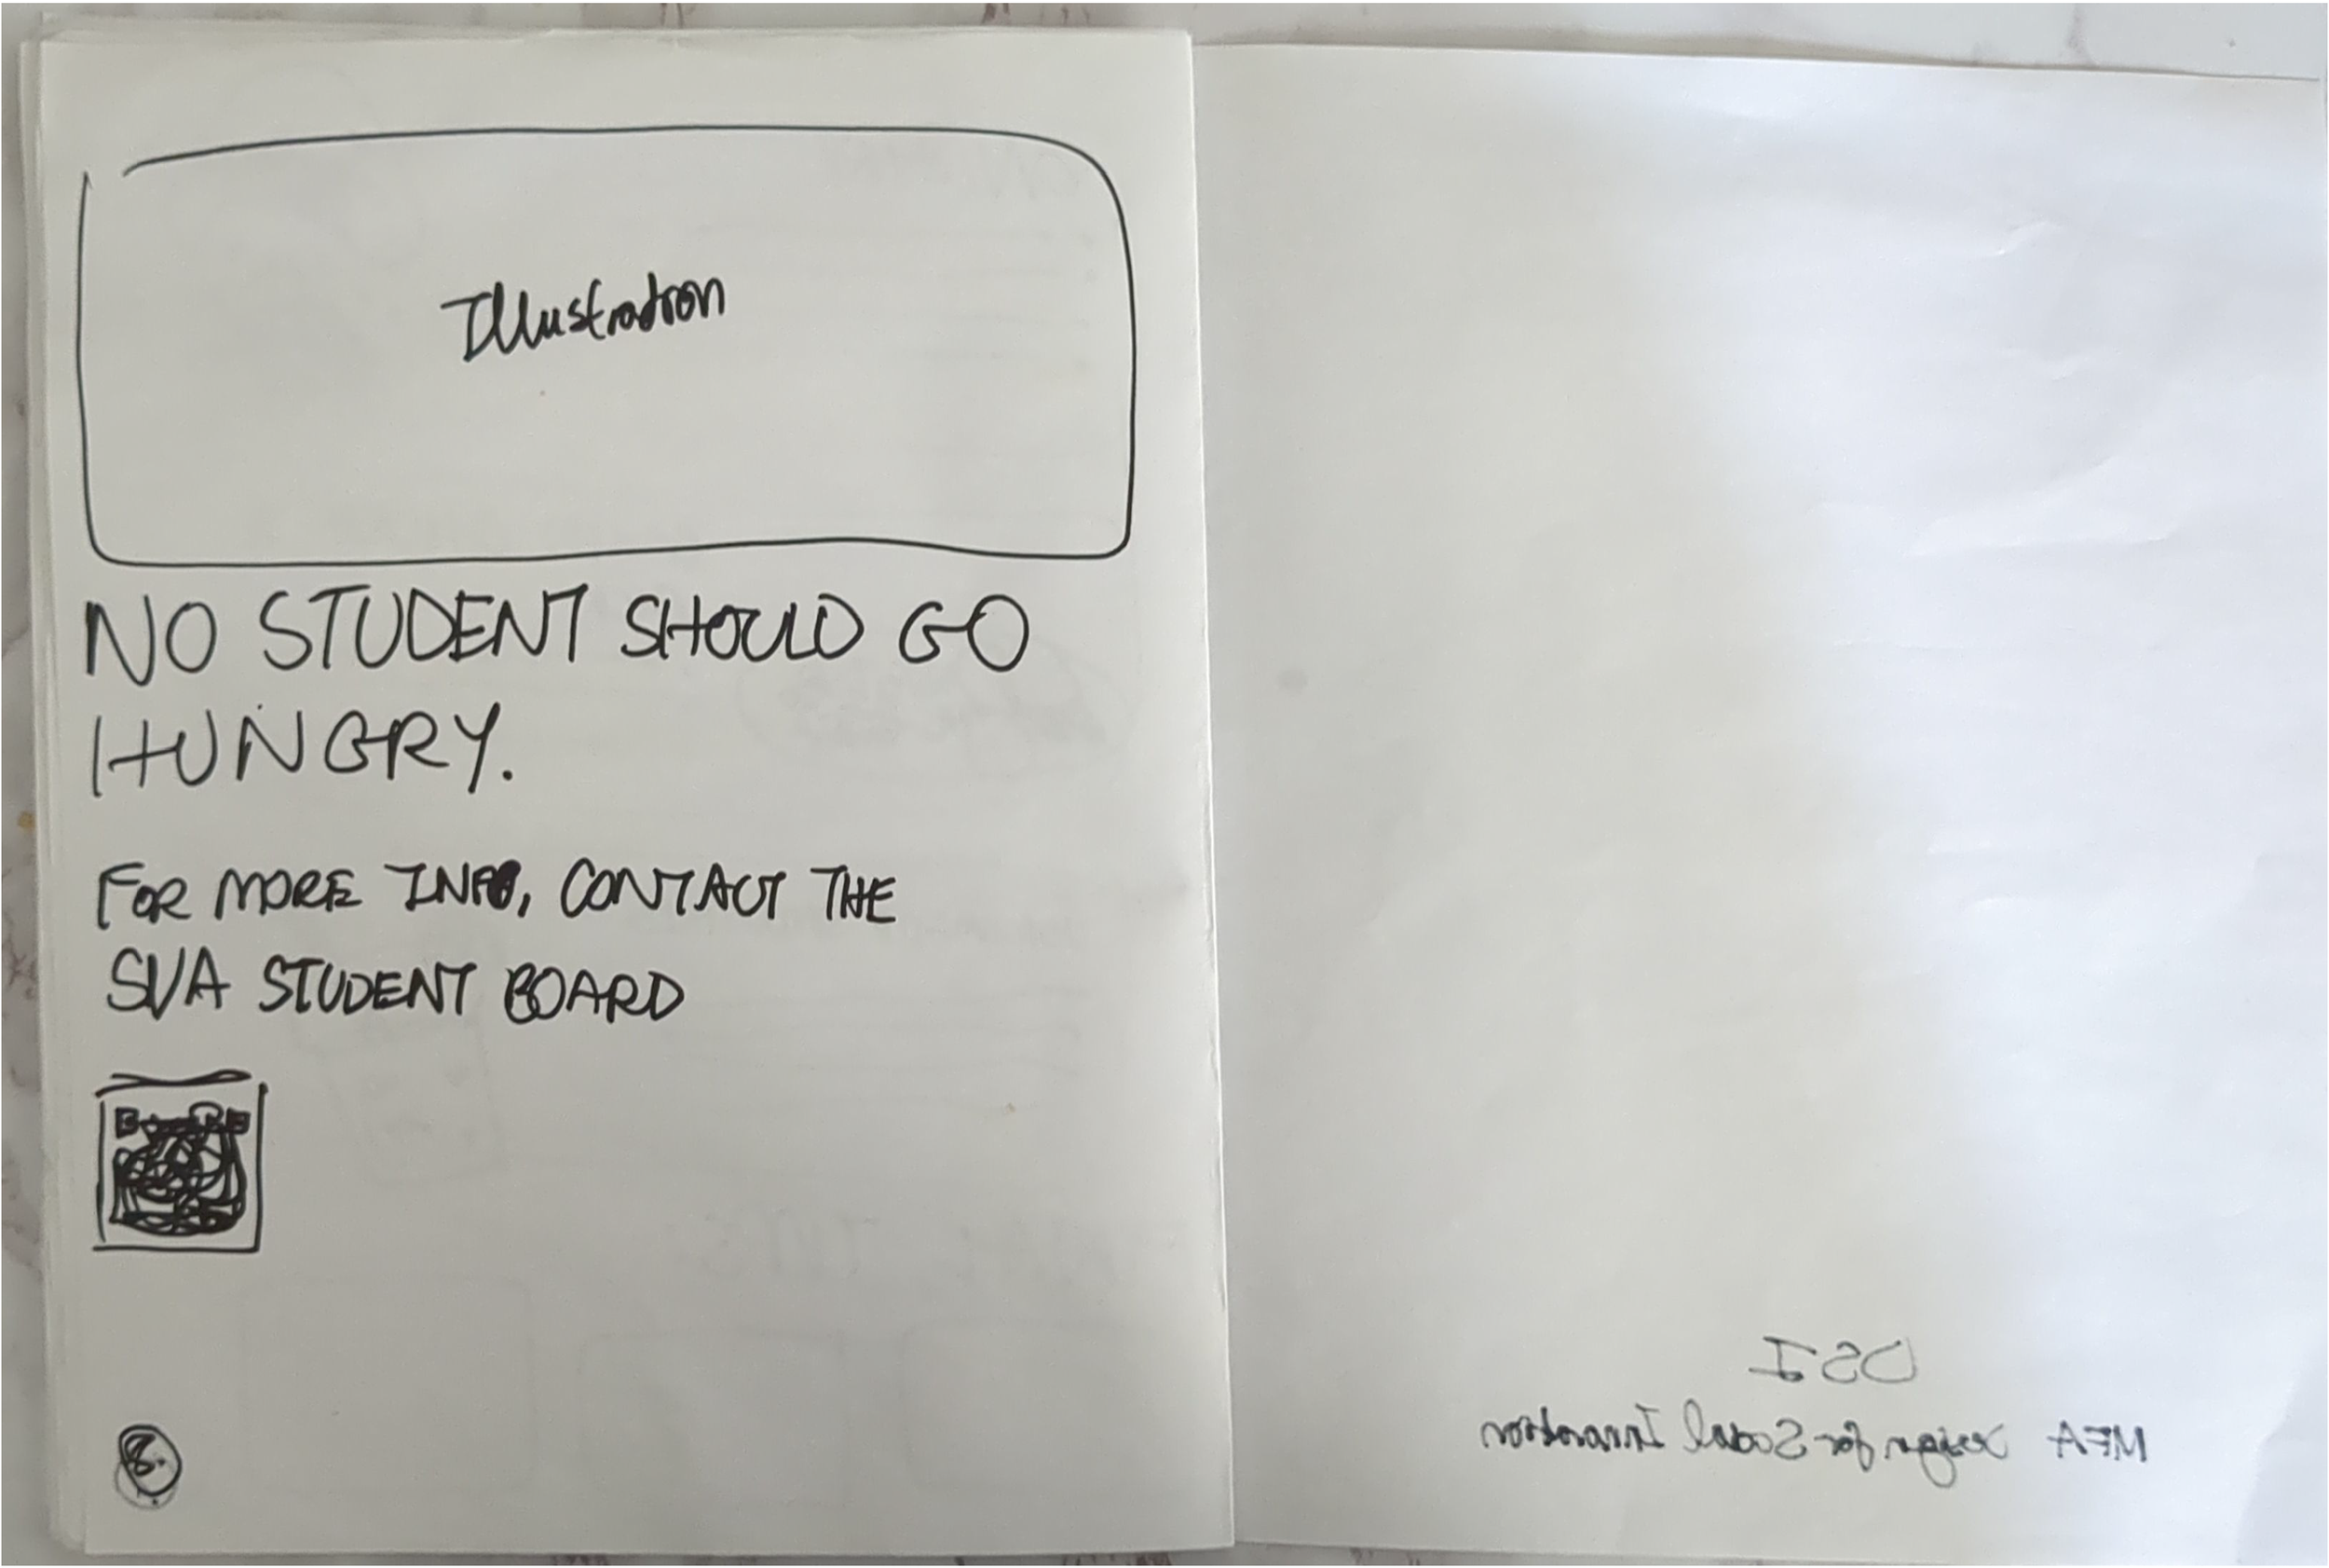 Illustration
NO STUDENT SHOULD GO
HUNGRY.
FOR MORE INFO, CONTACT THE
SVA STUDENT BOARD
8.
DSI
MFA Design for Social Innovation